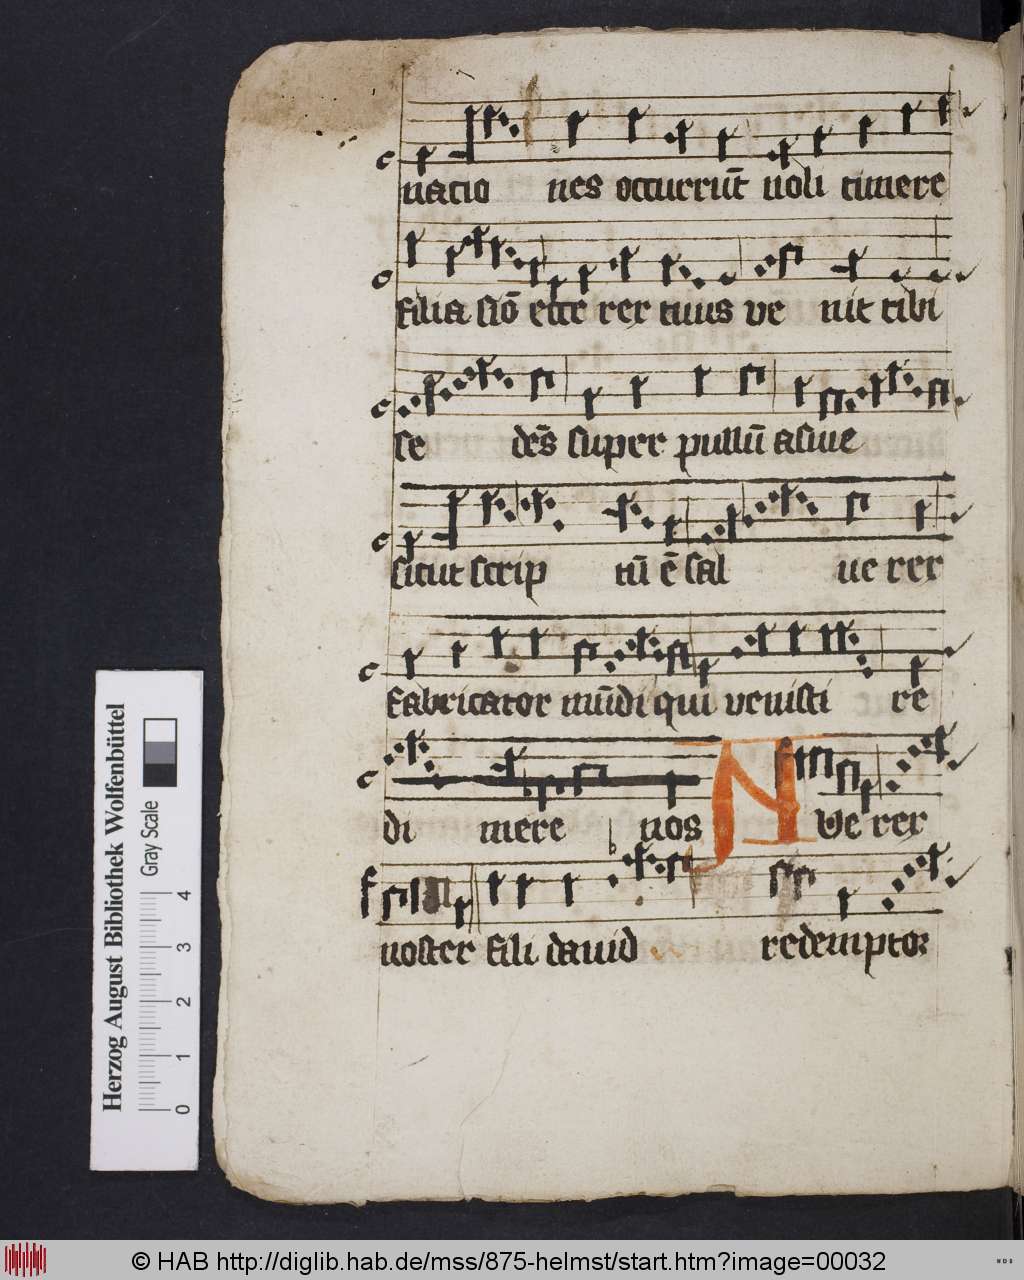 nacio nes occurrūt noli timere
filia siō ecce rex tuus ve nit tibi
se dēs super pullū asine
sicut scrip tū ē sal ue rex
fabricator mūdi qui venisti re
di mere nos N Ve rex
noster fili dauid redemptor
Herzog August Bibliothek Wolfenbüttel
Gray Scale
0 1 2 3 4
© HAB http://diglib.hab.de/mss/875-helmst/start.htm?image=00032